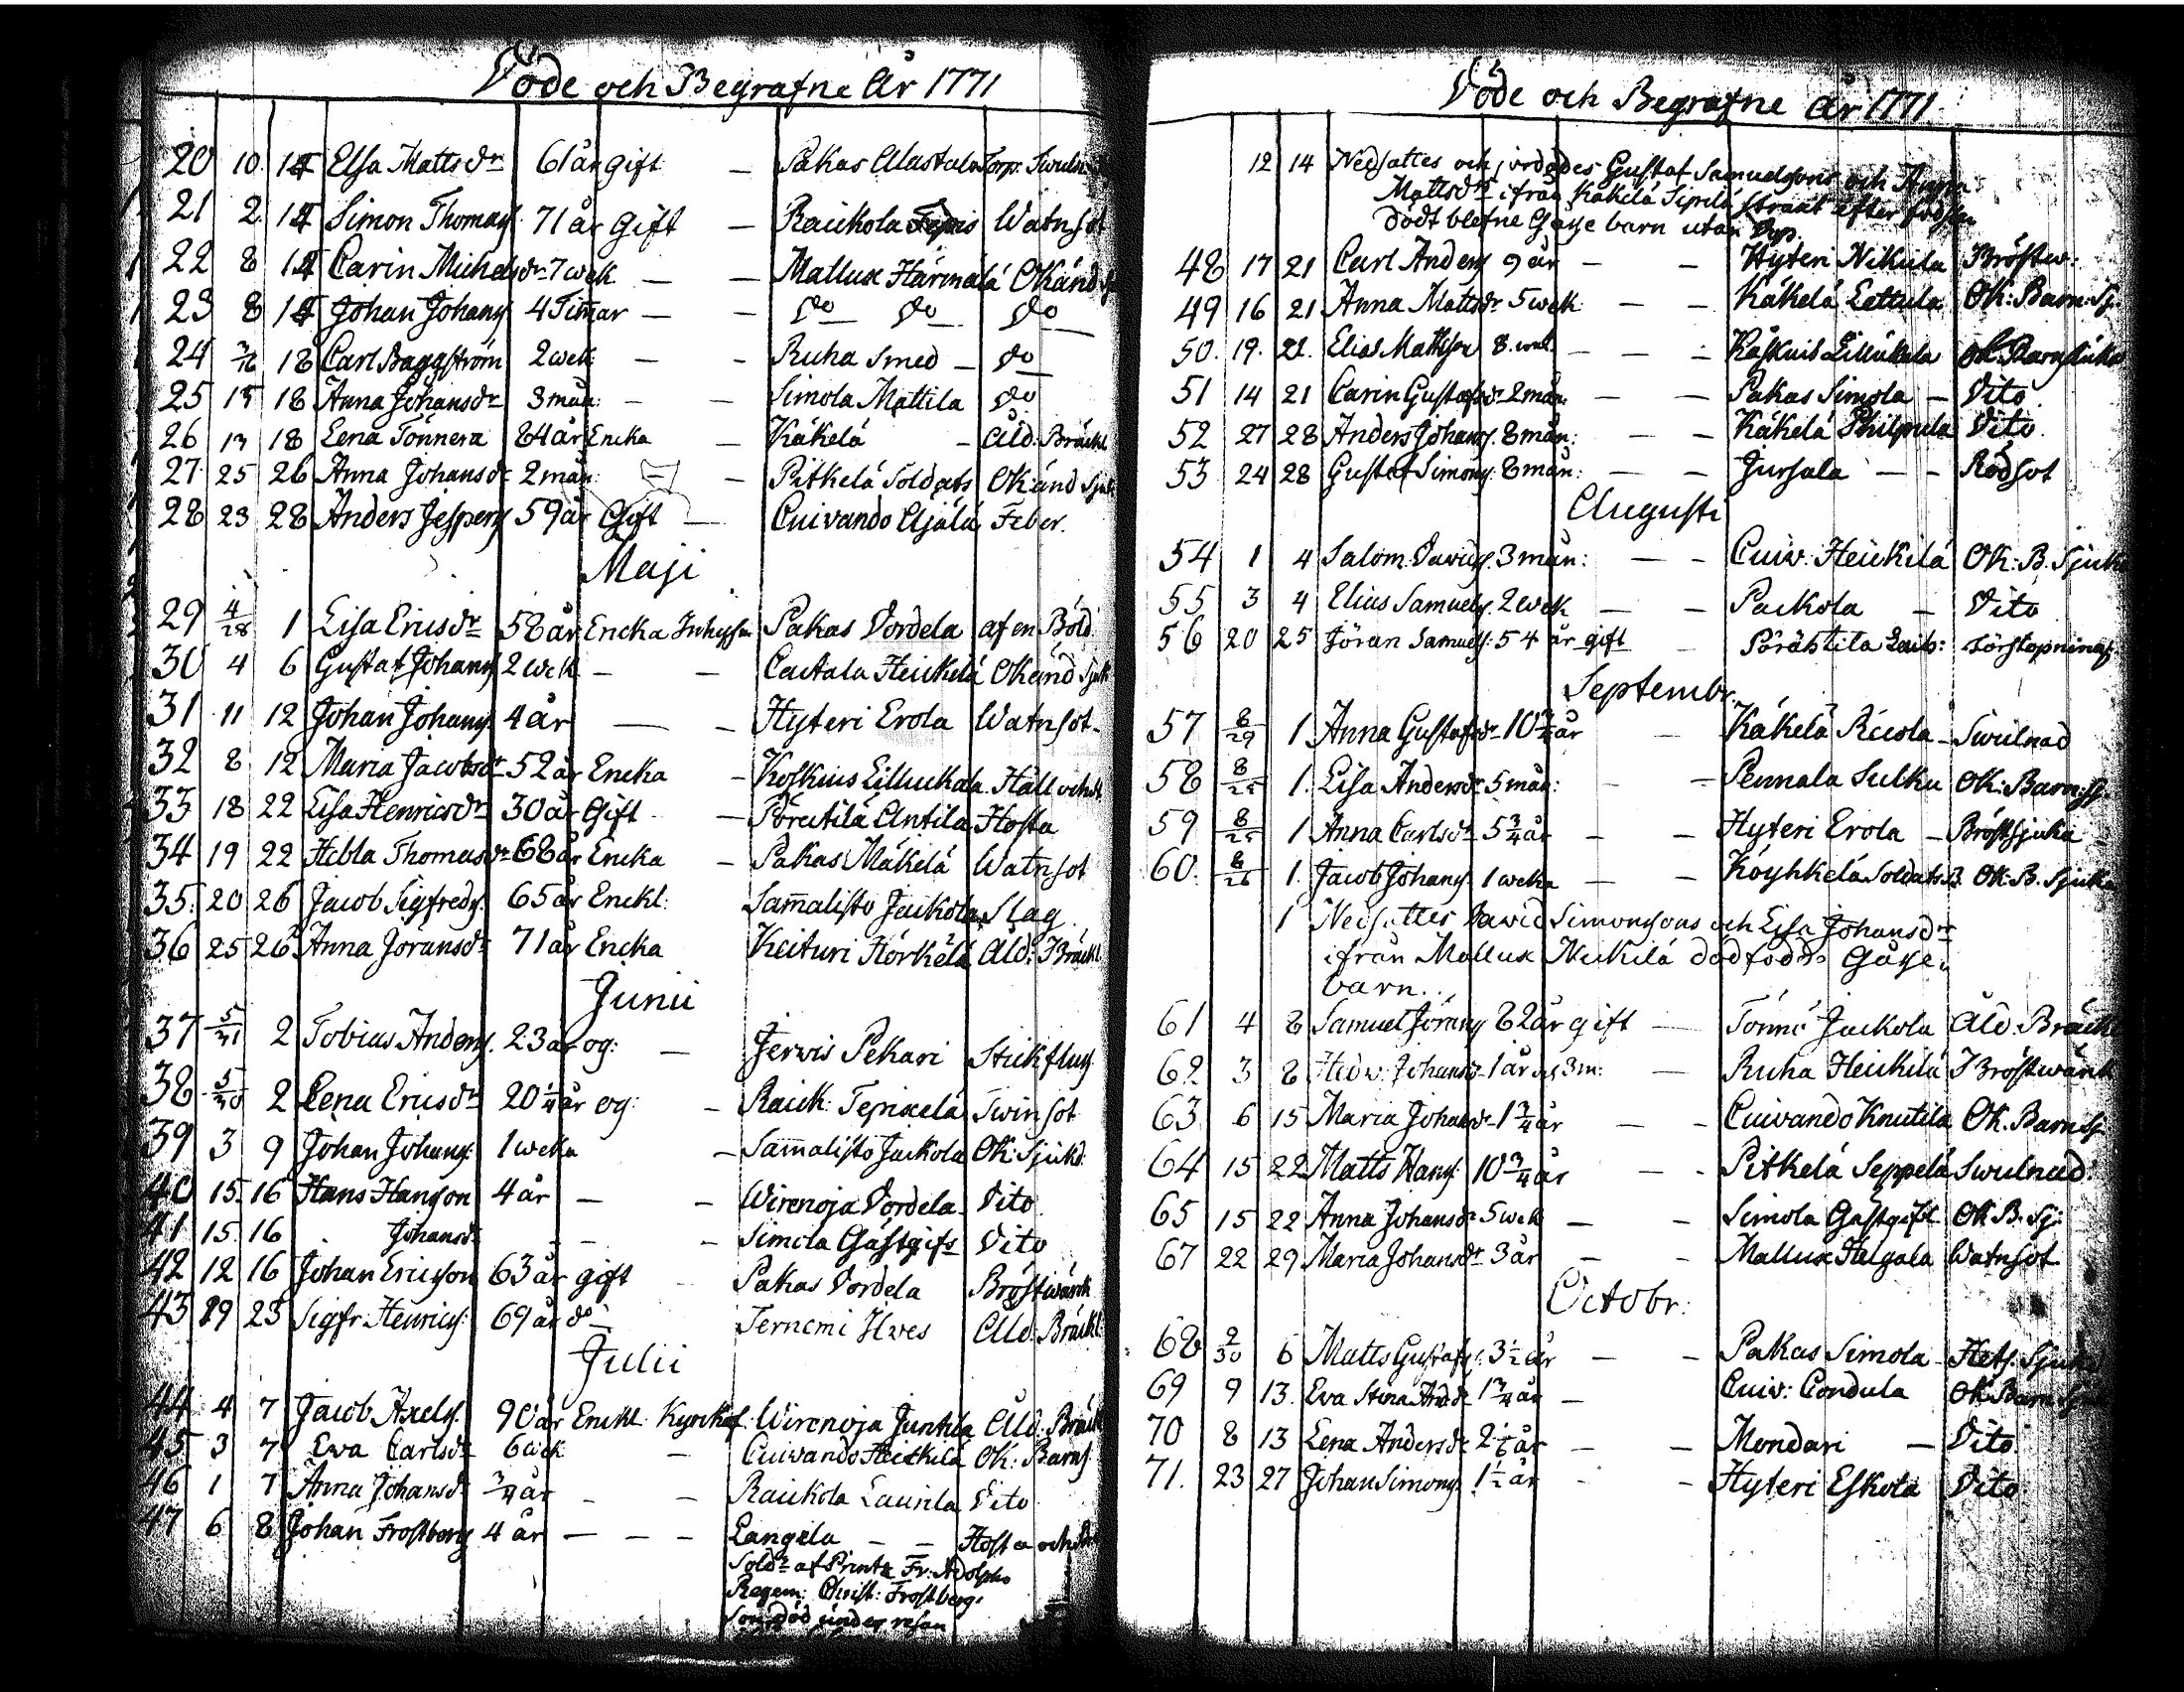 Döde och Begrafne År 1771
20 10 14 Elsa Matts dr 61 år gift — Pakas Alastalo Torp. Swuln.
21 2 14 Simon Thomass. 71 år Gift — Raickola Watnsot
22 8 14 Carin Michelsdr 7 wek — — Mallux Härmälä Okänd
23 8 14 Johan Johans 4 Timar — — Do Do Do
24 18 Carl Baggström 2 wek — — Ruha Smed — Do
25 15 18 Anna Johansdr 3 mån: — — Simola Mattila Do
26 13 18 Lena Tönnera 84 år Encka — Käkelä — Åld: Bräckl.
27 25 26 Anna Johansdr 2 mån: — Pitkelä Soldats Okänd Sjuk
28 23 28 Anders Jespers 59 år Gift — Cuivando Äjälä Feber.
Maji
29 4/28 1 Lisa Ericsdr 58 år Encka Inhyses Pakas Dordela af en Böld
30 4 6 Gustaf Johans 2 wek — — Cautala Heickelä Okänd Sjuk
31 11 12 Johan Johans 4 år — — Hyteri Erola Watnsot
32 8 12 Maria Jacobsdr 52 år Encka — Koskius Lilluckala Håll och
33 18 22 Lisa Henricsdr 30 år Gift — Pörätilä Antila Hosta
34 19 22 Hebla Thomasdr 68 år Encka — Pakas Mäkelä Watnsot
35. 20 26 Jacob Sigfreds. 65 år Enckl: Sam̄alisto Jackola Slag
36 25 26 Anna Joransdr 71 år Encka Keituri Hörkelä Åld: Bräckl.
Junii
37 5/31 2 Tobias Anders. 23 år og: — Jerwis Pekari Stickflus
38 5/30 2 Lena Ericsdr 20 1/4 år og: — Raick: Tepixelä Twinsot
39 3 9 Johan Johans: 1 weka — Sam̄alisto Jackola Ok: Sjukd.
40 15. 16 Hans Hansson 4 år — — Wirenoja Dordela Dito
41 15. 16 Johansdr — — Simola Gästgifs Dito
42 12 16 Johan Ericsson 63 år gift Pakas Dordela Bröstwärk
43 19 23 Sigfr. Henrics: 69 år do Ternemi Ilves Åld: Bräckl:
Julii
44 4 7 Jacob Axels. 90 år Enckl. Wirenoja Juntila Åld: Bräckl
45 3 7 Ewa Carlsdr 6 wek — Cuivando Heickilä Ok: Barns.
46 1 7 Anna Johansdr 3/4 år — — Raickola Laurila Dito
47 6 8 Johan Frostberg 4 år — — — Langela — — Hosta och
Soldr af Printz Fr. Adolphs
Regem: Christ: Frostbergs
son död under resan
Döde och Begrafne År 1771
12 14 Nedsattes och jordades Gustaf Samuelsons och Anna
Mattsdrs ifrån Käkelä Sipilä straxt efter födslen
dödt blefne Gosse barn utan Dop.
48 17 21 Carl Anders 9 år — — Hyteri Nikula Bröstw:
49 16 21 Anna Mattsdr 5 wek — — Käkelä Eettula Ok: Barn: Sj.
50. 19. 21. Elias Mattsson 8. wek. — — — Koskuis Lilluckala Ok. Barnsjuka
51 14 21 Carin Gustafsdr 2 mån — — Pakas Simola — Dito.
52 27 28 Anders Johans. 8 mån: — — Käkelä Philpula Dito.
53 24 28 Gustaf Simons: 8 mån: — — Jursala — — Rödsot
Augusti
54 1 4 Salom. Dawids. 3 mån: — — Cuiv: Heickilä Ok: B. Sjuka
55 3 4 Elias Samuels. 2 wek — — Packola — Dito
56 20 25 Jöran Samuels: 54 år gift — Pörähtilä förstopnings.
Septembr.
57 8/29 1 Anna Gustafsdr 10 3/4 år — Käkelä Ricola Swulnad
58 8/25 1. Lisa Andersdr 5 mån: — Pennala Sulku Ok: Barn: sj.
59 8/25 1 Anna Carlsdr 5 3/4 år — — Hyteri Erola Bröstsjuka
60. 8/26 1. Jacob Johans 1 weka — — Köyhkelä Soldats B. Ok. B. Sjuka
1 Nedsattes Dawid Simonssons och Lisa Johansdrs
ifrån Mallux Neckilä dödfödde Gosse
barn.
61 4 8 Samuel Jörans 82 år gift — Tönnö Jackola Åld. Bräckl
62 3 8 Hedw: Johansdr 1 år och 3 m: — Ruha Heickilä Bröstwärk
63 6 15 Maria Johansdr 1 3/4 år — — Cuivando Knutila Ok. Barn Sj.
64 15 22 Matts Hans: 10 3/4 år — — Pitkelä Seppelä Swulnad
65 15 22 Anna Johansdr 5 wek — — Simola Gästgift Ok B. Sj:
67 22 29 Maria Johansdr 3 år — — Mallux Helgala Watnsot
Octobr:
68 9/30 6 Matts Gustafs: 3 1/2 år — — Pakas Simola Hets. Sjuka
69 9 13. Eva Stina Andr. 1 3/4 år — Cuiv: Condula Ok Barn Sj
70 8 13 Lena Andersdr 2 1/6 år — — Mondari — Dito
71. 23 27 Johan Simons 1 1/2 år — — Hyteri Eskola Dito